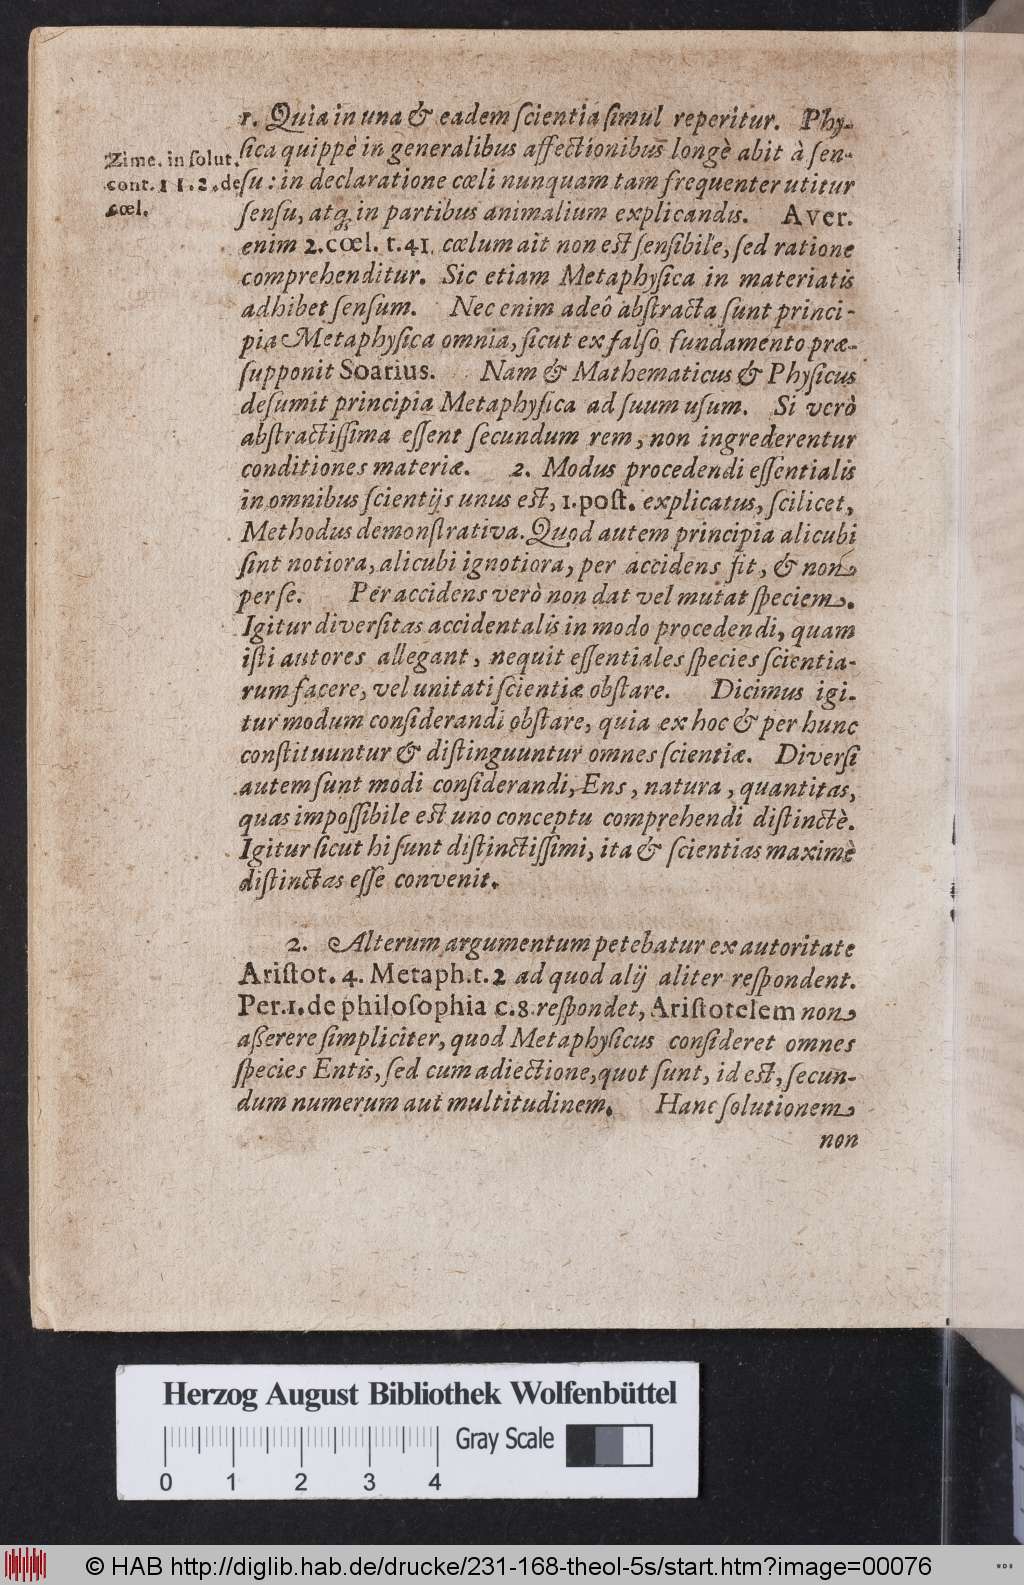 1. Quia in una & eadem ſcientia ſimul reperitur. Phy-
Zime. in ſolut.
cont. 11. 2. de
cœl.
ſica quippè in generalibus affectionibus longè abit à ſen-
ſu: in declaratione cœli nunquam tam frequenter utitur
ſenſu, atq; in partibus animalium explicandis. Aver.
enim 2. cœl. t. 41. cœlum ait non eſt ſenſibile, ſed ratione
comprehenditur. Sic etiam Metaphyſica in materiatis
adhibet ſenſum. Nec enim adeô abſtracta ſunt princi-
pia Metaphyſica omnia, ſicut ex falſo fundamento præ-
ſupponit Soarius. Nam & Mathematicus & Phyſicus
deſumit principia Metaphyſica ad ſuum uſum. Si verò
abſtractiſſima eſſent ſecundum rem, non ingrederentur
conditiones materiæ. 2. Modus procedendi eſſentialis
in omnibus ſcientijs unus eſt, 1. poſt. explicatus, ſcilicet,
Methodus demonſtrativa. Quod autem principia alicubi
ſint notiora, alicubi ignotiora, per accidens fit, & non
per ſe. Per accidens verò non dat vel mutat ſpeciem.
Igitur diverſitas accidentalis in modo procedendi, quam
iſti autores allegant, nequit eſſentiales ſpecies ſcientia-
rum facere, vel unitati ſcientiæ obſtare. Dicimus igi-
tur modum conſiderandi obſtare, quia ex hoc & per hunc
conſtituuntur & diſtinguuntur omnes ſcientiæ. Diverſi
autem ſunt modi conſiderandi, Ens, natura, quantitas,
quas impoſſibile eſt uno conceptu comprehendi diſtinctè.
Igitur ſicut hi ſunt diſtinctiſſimi, ita & ſcientias maximè
diſtinctas eſſe convenit.
2. Alterum argumentum petebatur ex autoritate
Ariſtot. 4. Metaph. t. 2 ad quod alij aliter reſpondent.
Per. 1. de philoſophia c. 8. reſpondet, Ariſtotelem non
aßerere ſimpliciter, quod Metaphyſicus conſideret omnes
ſpecies Entis, ſed cum adiectione, quot ſunt, id eſt, ſecun-
dum numerum aut multitudinem. Hanc ſolutionem
non
Herzog August Bibliothek Wolfenbüttel
0 1 2 3 4 Gray Scale
© HAB http://diglib.hab.de/drucke/231-168-theol-5s/start.htm?image=00076